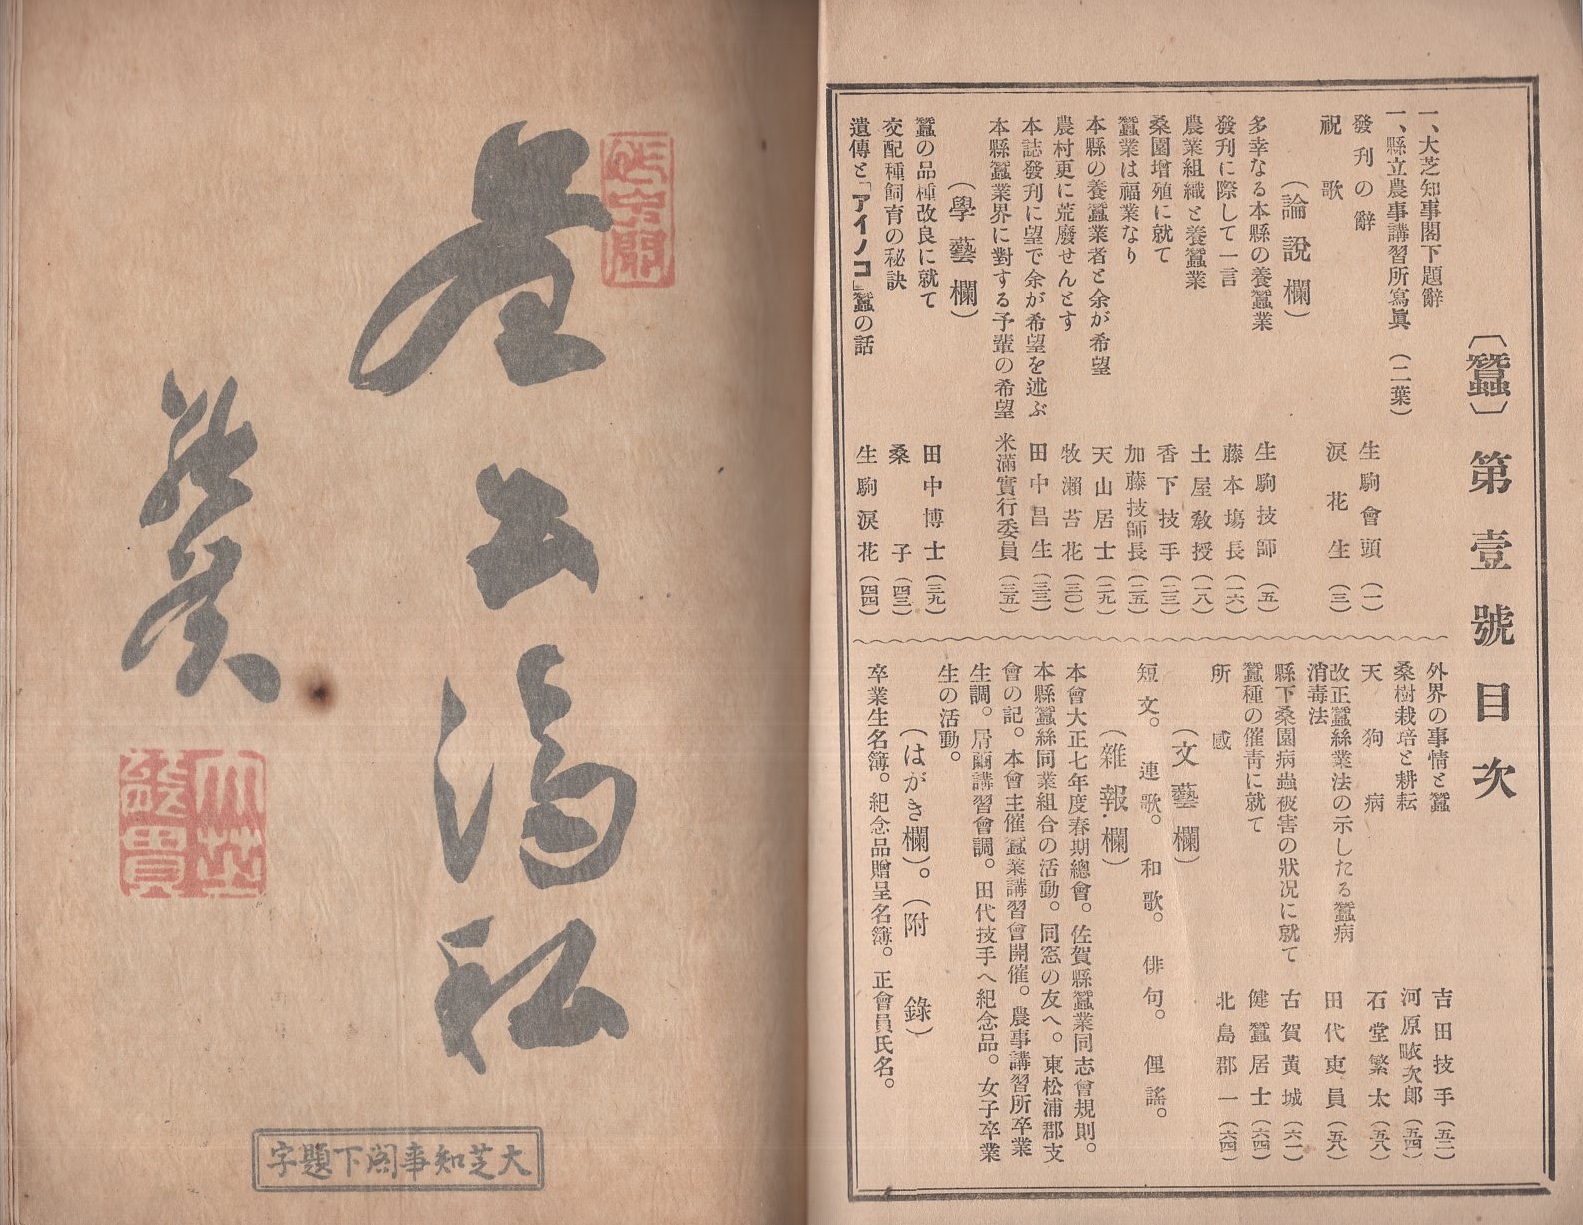 〔蠶〕第壹號目次
一、大芝知事閣下題辭
一、縣立農事講習所寫眞（二葉）
發刊の辭 生駒會頭（一）
祝歌 淚花生（三）
（論說欄）
多幸なる本縣の養蠶業 生駒技師（五）
發刊に際して一言 藤本塲長（一六）
農業組織と養蠶業 土屋敎授（一八）
桑園增殖に就て 香下技手（二三）
蠶業は福業なり 加藤技師長（二五）
本縣の養蠶業者と余が希望 天山居士（二九）
農村更に荒廢せんとす 牧瀨苔花（三〇）
本誌發刊に望で余が希望を述ぶ 田中昌生（三三）
本縣蠶業界に對する予輩の希望 米滿實行委員（三五）
（學藝欄）
蠶の品種改良に就て 田中博士（三九）
交配種飼育の秘訣 桑子（四三）
遺傳と「アイノコ」蠶の話 生駒淚花（四四）
外界の事情と蠶 吉田技手（五二）
桑樹栽培と耕耘 河原畩次郎（五四）
天狗病 石堂繁太（五八）
改正蠶絲業法の示したる蠶病
消毒法 田代吏員（五八）
縣下桑園病蟲被害の狀况に就て 古賀黃城（六一）
蠶種の催靑に就て 健蠶居士（六四）
所感 北島郡一（六四）
（文藝欄）
短文。連歌。和歌。俳句。俚謠。
（雜報欄）
本會大正七年度春期總會。佐賀縣蠶業同志會規則。
本縣蠶絲同業組合の活動。同窓の友へ。東松浦郡支
會の記。本會主催蠶業講習會開催。農事講習所卒業
生調。屑繭講習會調。田代技手へ紀念品。女子卒業
生の活動。
（はがき欄）。（附錄）
卒業生名簿。紀念品贈呈名簿。正會員氏名。
大芝知事閣下題字